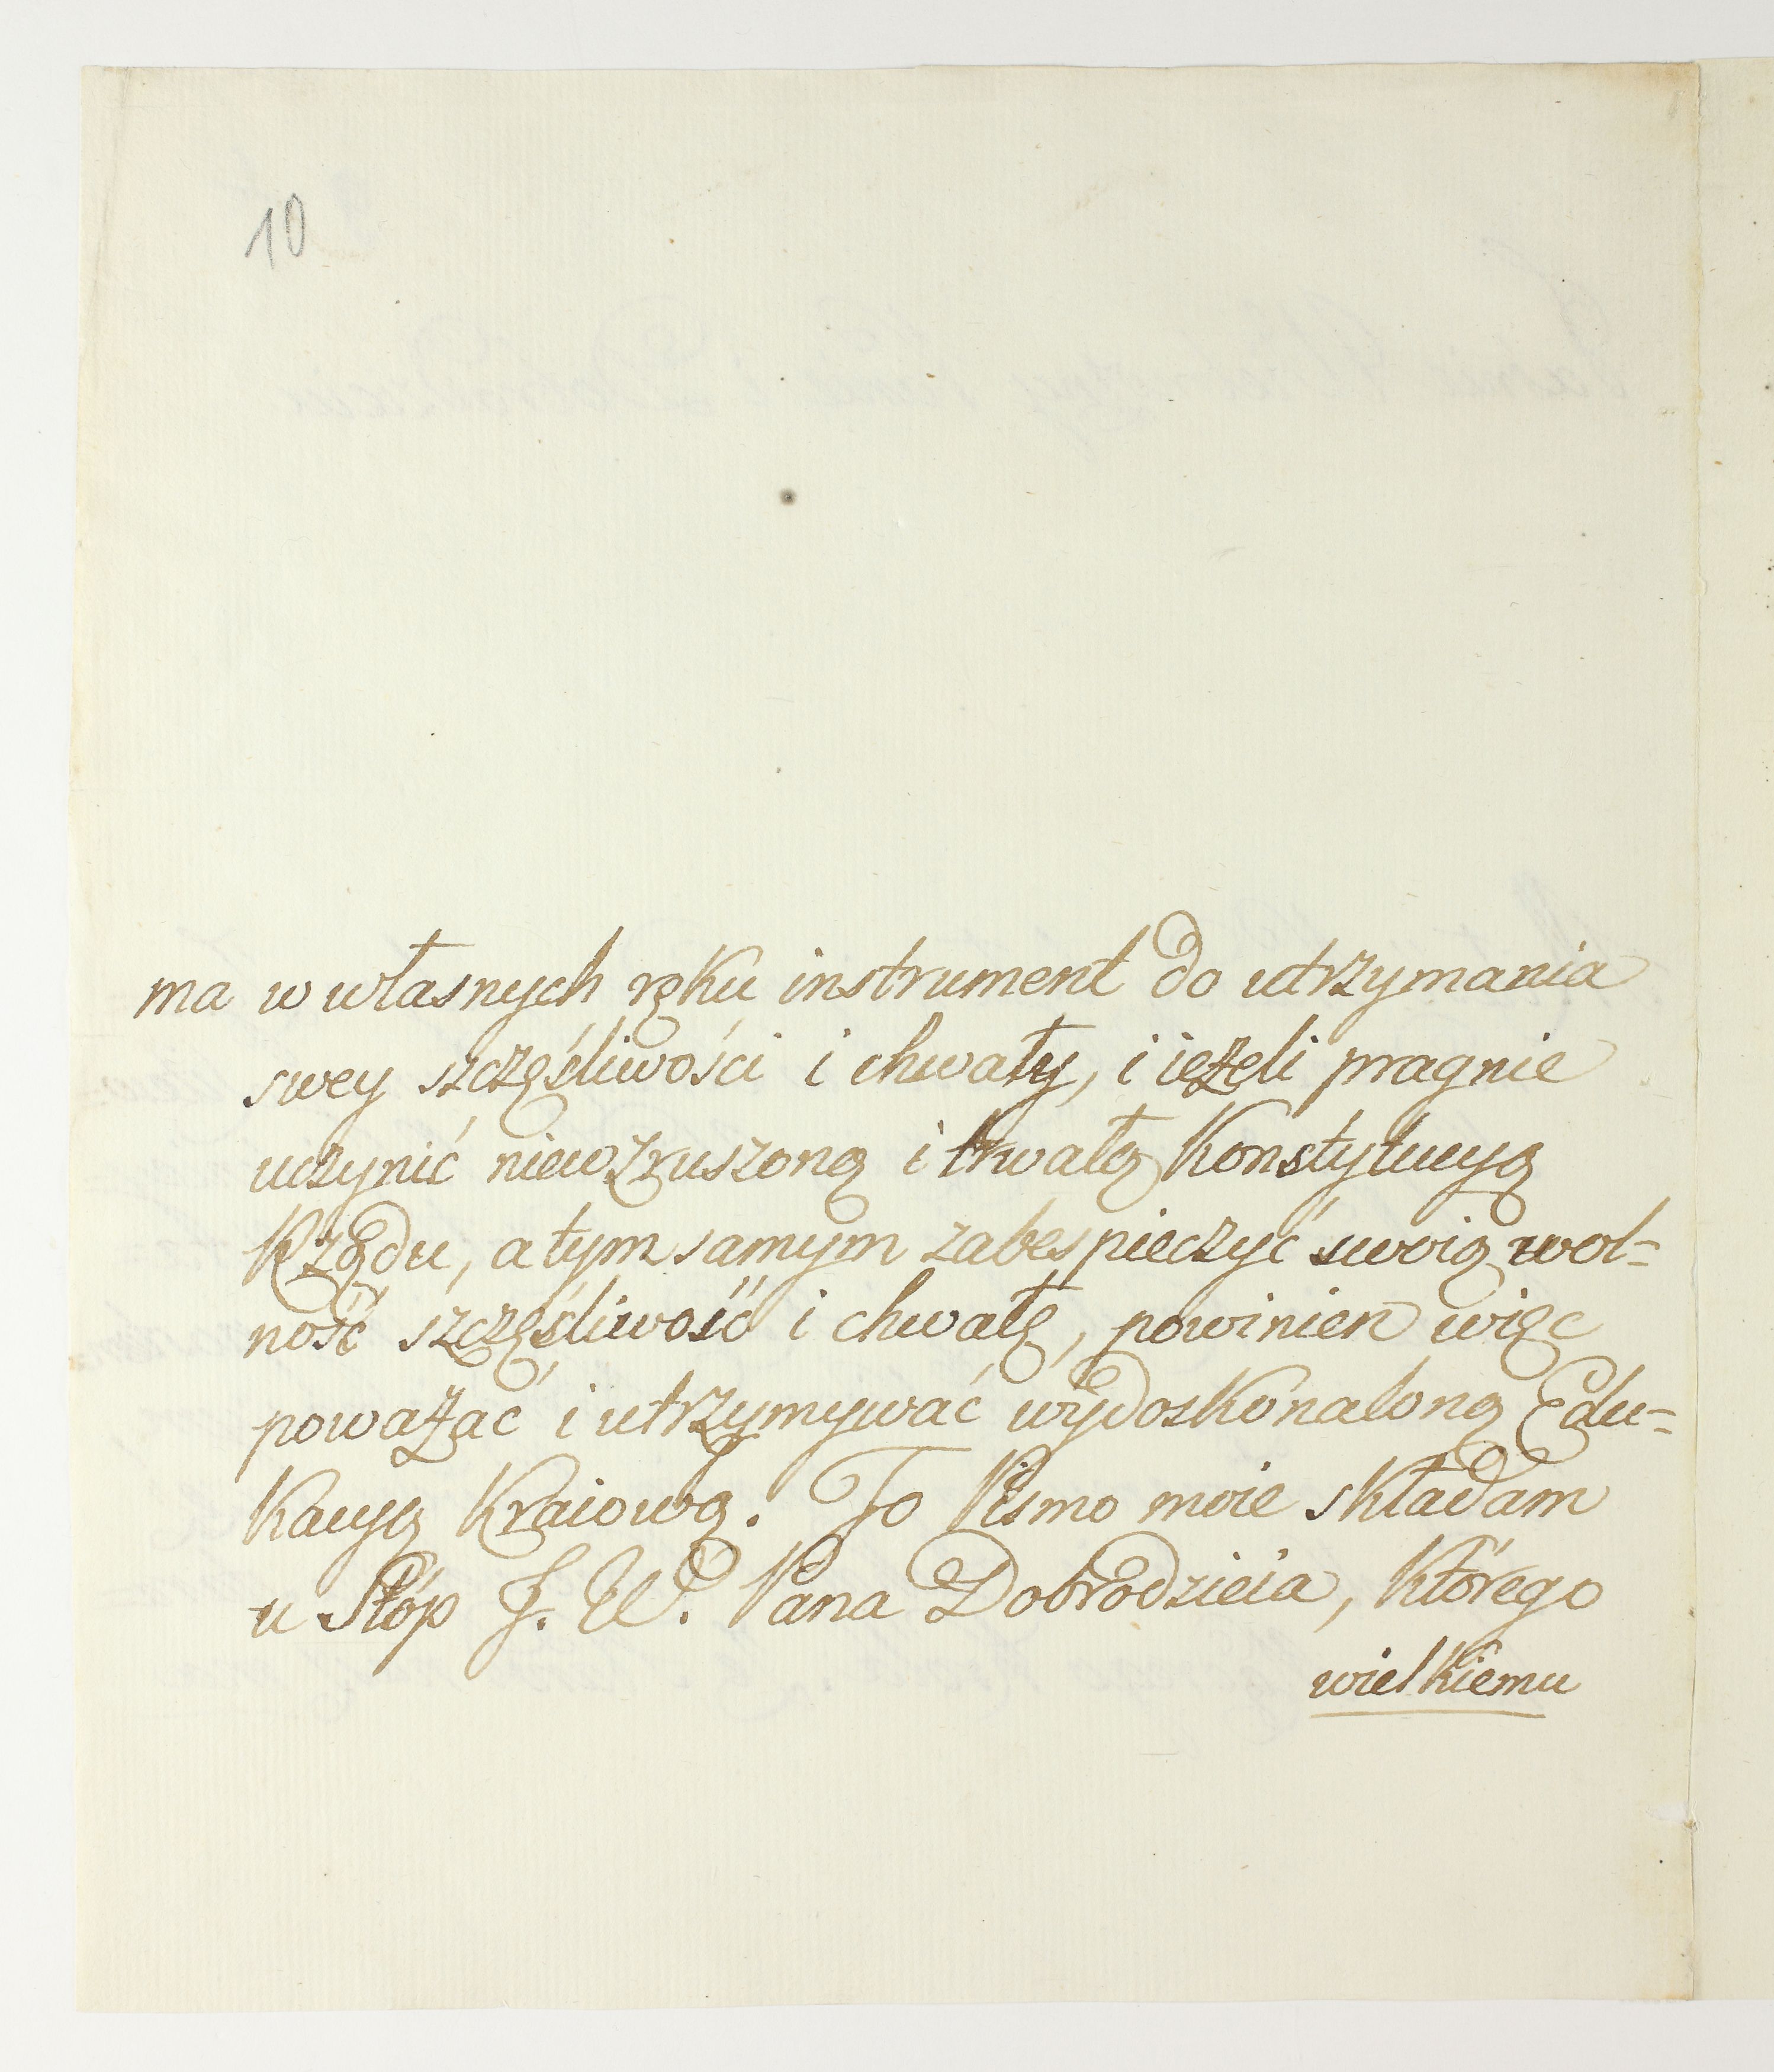 10
ma w własnych ręku instrument do utrzymania
swey szczęśliwości i chwały, i ieżeli pragnie
uczynić niewzruszoną i trwałą Konstytucyą
Rządu, a tym samym zabespieczyć swoią wol=
ność szczęśliwość i chwałę, powinien więc
poważać i utrzymywać wydoskonaloną Edu=
kacyą Kraiową. To Pismo moie składam
u Stóp J. W. Pana Dobrodzieia, którego
wielkiemu